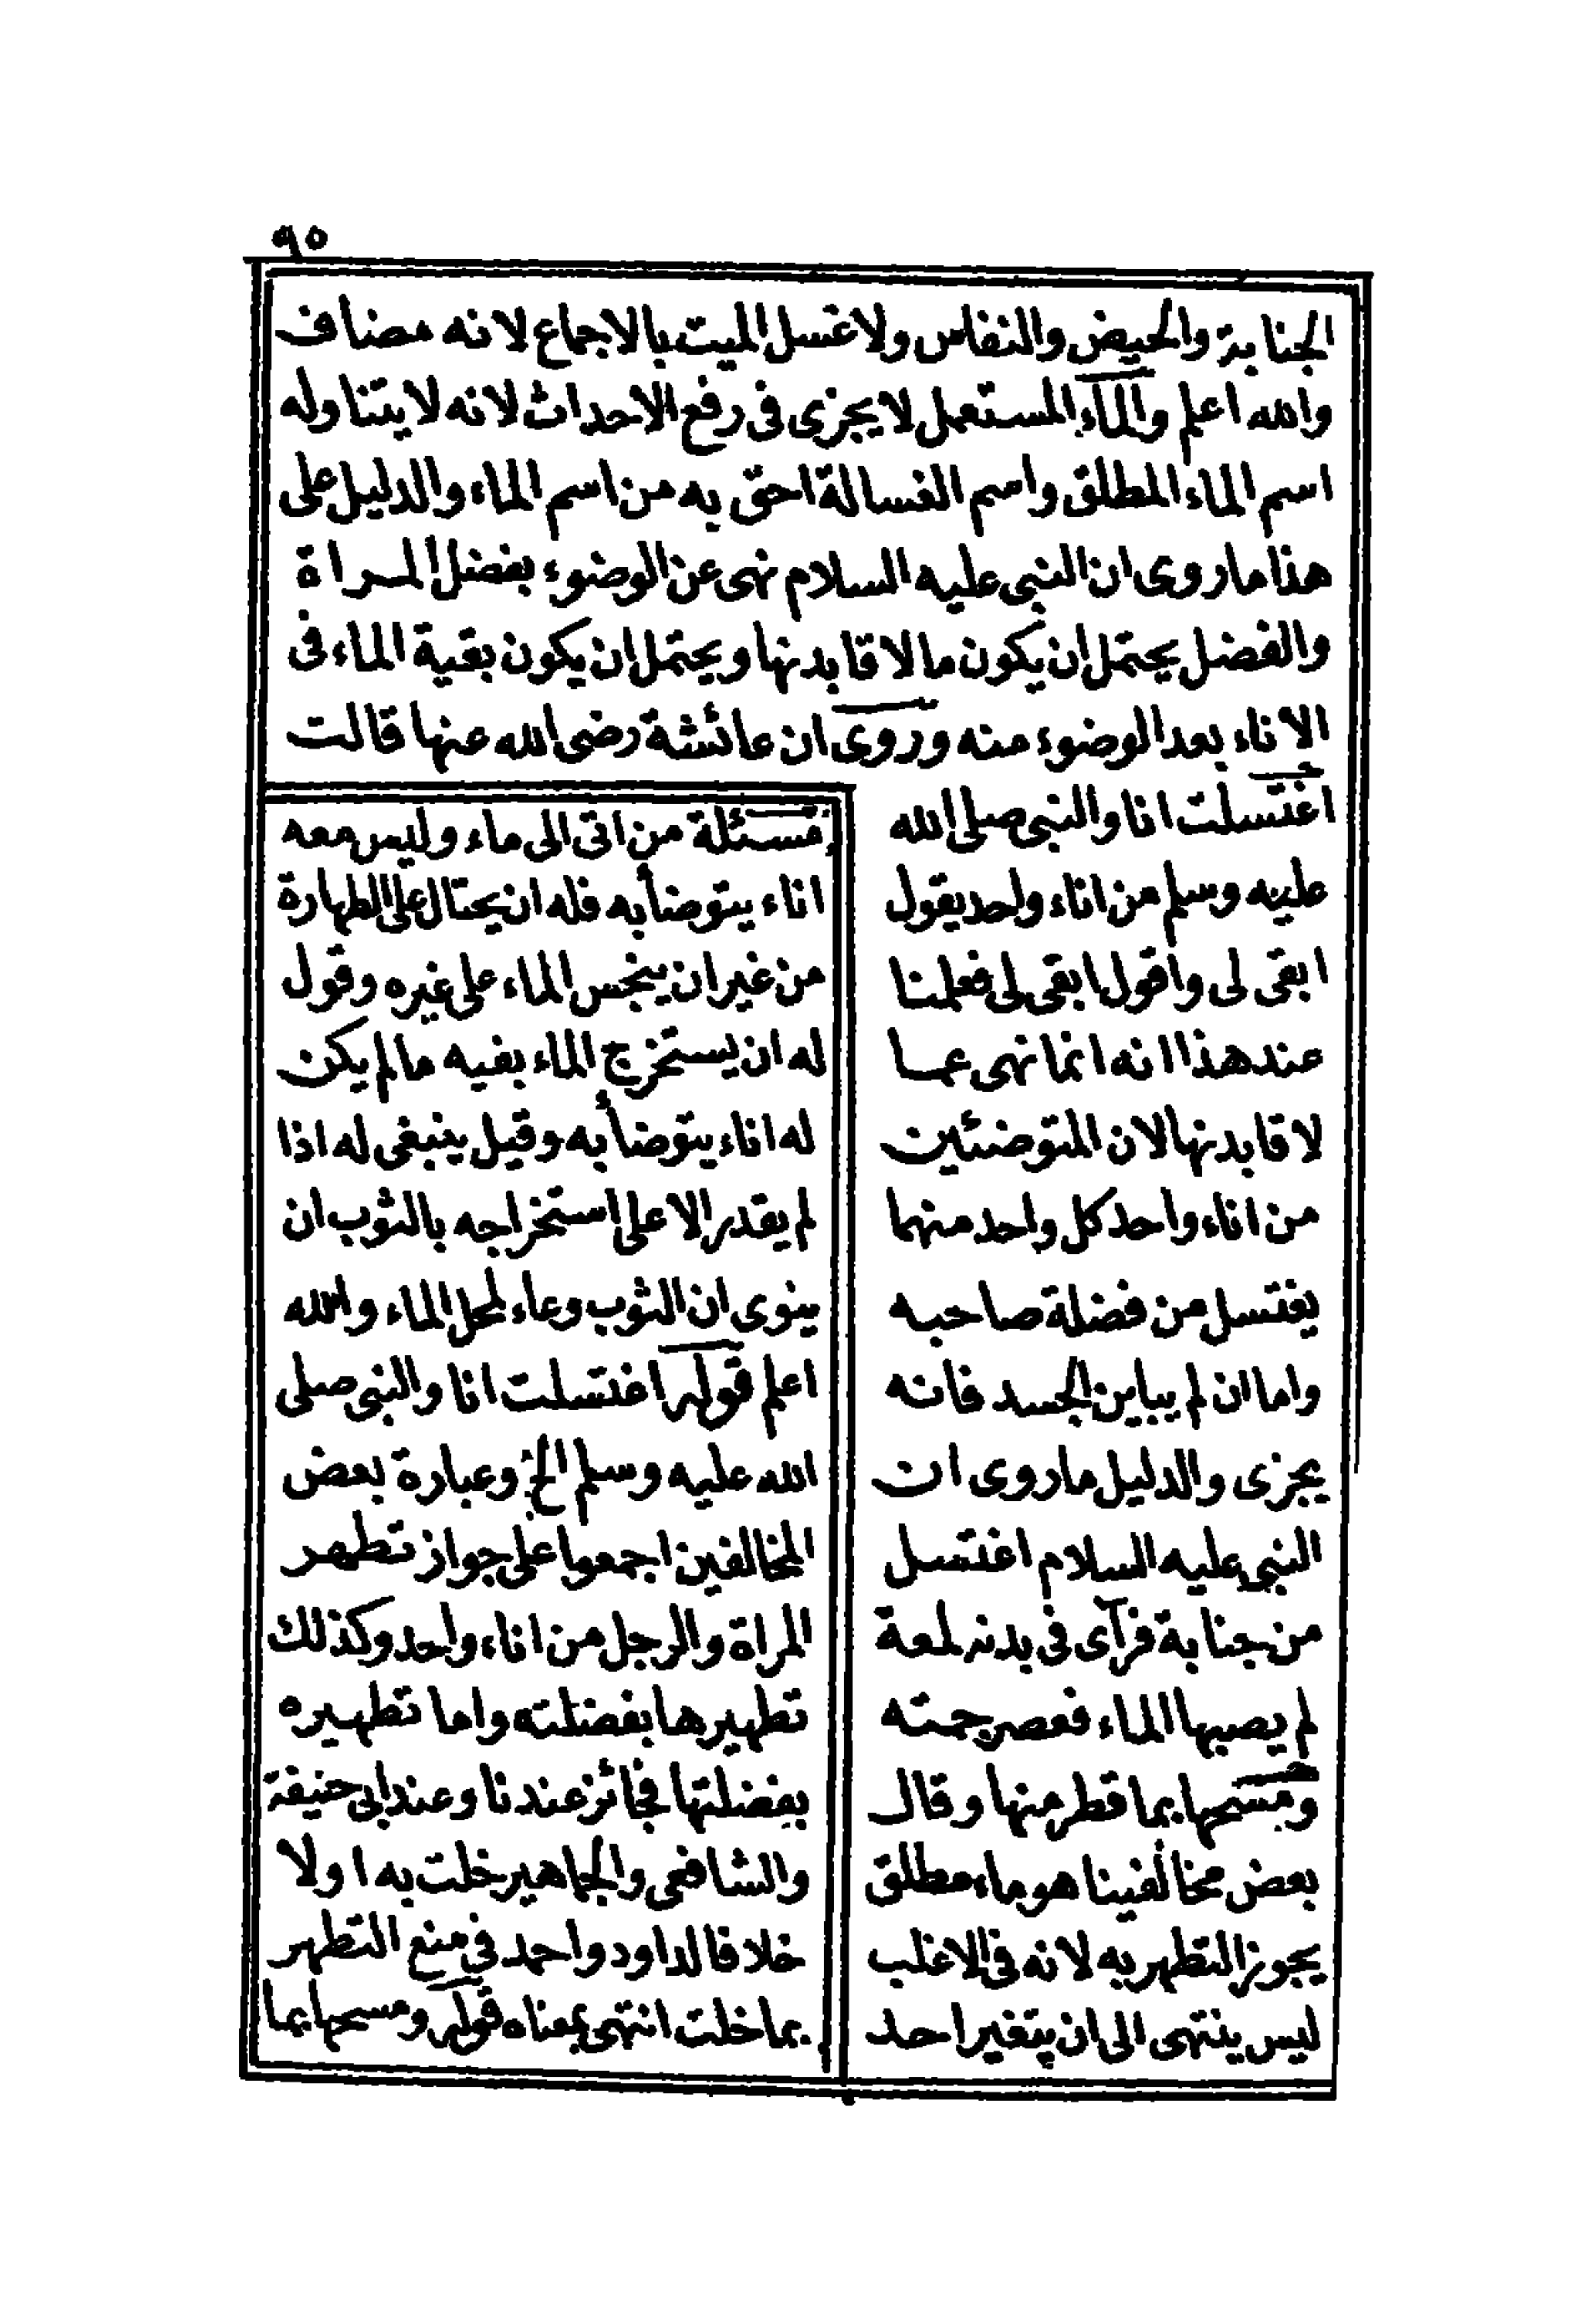 ٩٥
الجنابة والحيض والنفاس ولا غسل الميت بالاجماع لانه مضاف
والله اعلم والماء المستعمل لا يجزى فى رفع الاحداث لانه لا يتناوله
اسم الماء المطلق واسم الغسالة احق به من اسم الماء والدليل على
هذا ما روى ان النبى عليه السلام نهى عن الوضوء بفضل المراة
والفضل يحتمل ان يكون ما لاقا بدنها ويحتمل ان يكون بقية الماء فى
الاناء بعد الوضوء منه وروى ان عائشة رضى الله عنها قالت
اغتسلت انا والنبى صلى الله
عليه وسلم من اناء واحد يقول
ابقى لى واقول ابقى لى فعلمنا
عند هذا انه انما نهى عما
لاقا بدنها لان المتوضئين
من اناء واحد كل واحد منهما
يغتسل من فضلة صاحبه
واما ان لم يباين الجسد فانه
يجزى والدليل ما روى ان
النبى عليه السلام اغتسل
من جنابة فرآى فى بدنه لمعة
لم يصبها الماء فعصر جمته
ومسحها بما قطر منها وقال
بعض مخالفينا هو ماء مطلق
يجوز التطهر به لانه فى الاغلب
ليس ينتهى الى ان يتغير احد
مسئلة من اتى الى ماء وليس معه
اناء يتوضأ به فله ان يحتال على الطهارة
من غير ان ينجس الماء على غيره وقول
له ان يستخرج الماء بفيه ما لم يكن
له اناء يتوضأ به وقيل ينبغى له اذا
لم يقدر الا على استخراجه بالثوب ان
ينوى ان الثوب وعاء لحمل الماء والله
اعلم قوله اغتسلت انا والنبى صلى
الله عليه وسلم الخ وعبارة بعض
المخالفين اجمعوا على جواز تطهر
المراة والرجل من اناء واحد وكذلك
تطهيرها بفضلته واما تطهيره
بفضلتها فجائز عندنا وعند ابى حنيفة
والشافعى والجماهير خلت به اولا
خلافا لداود واحمد فى منع التطهر
بما خلت انتهى بمعناه قوله ومسحها بما